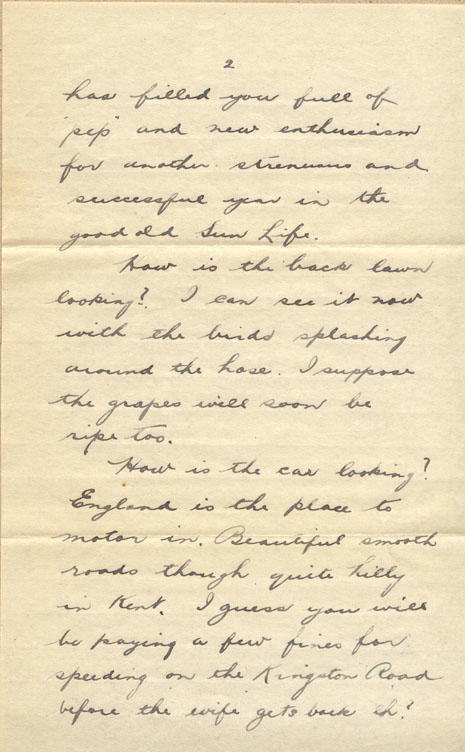 2
has filled you full of
"pep" and new enthusiasm
for another strenuous and
successful year in the
good old Sun Life.
How is the back lawn
looking? I can see it now
with the birds splashing
around the hose. I suppose
the grapes will soon be
ripe too.
How is the car looking?
England is the place to
motor in. Beautiful smooth
roads though quite hilly
in Kent. I guess you will
be paying a few fines for
speeding on the Kingston Road
before the wife gets back eh?